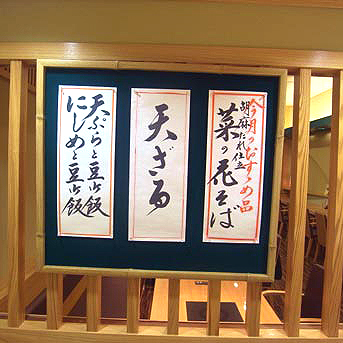 今月のおすすめ品
胡麻だれ仕立
菜の花そば
天ざる
天ぷらと豆ご飯
にしめと豆ご飯